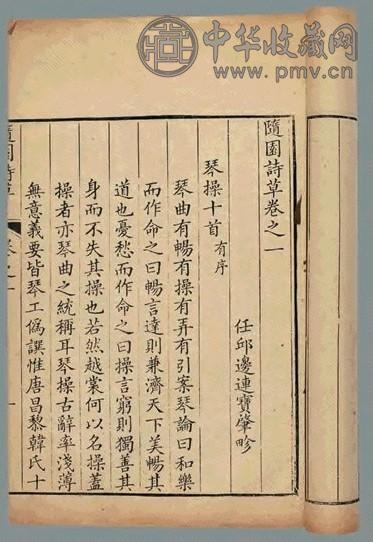 中华收藏网
www.pmv.cn
隨園詩草卷之一
任邱邊連寶肇畛
琴操十首有序
琴曲有暢有操有弄有引案琴論曰和樂
而作命之曰暢言達則兼濟天下美暢其
道也憂愁而作命之曰操言窮則獨善其
身而不失其操也若然越裳何以名操蓋
操者亦琴曲之統稱耳琴操古辭率淺薄
無意義要皆琴工僞譔惟唐昌黎韓氏十
隨園詩草
卷之一
一